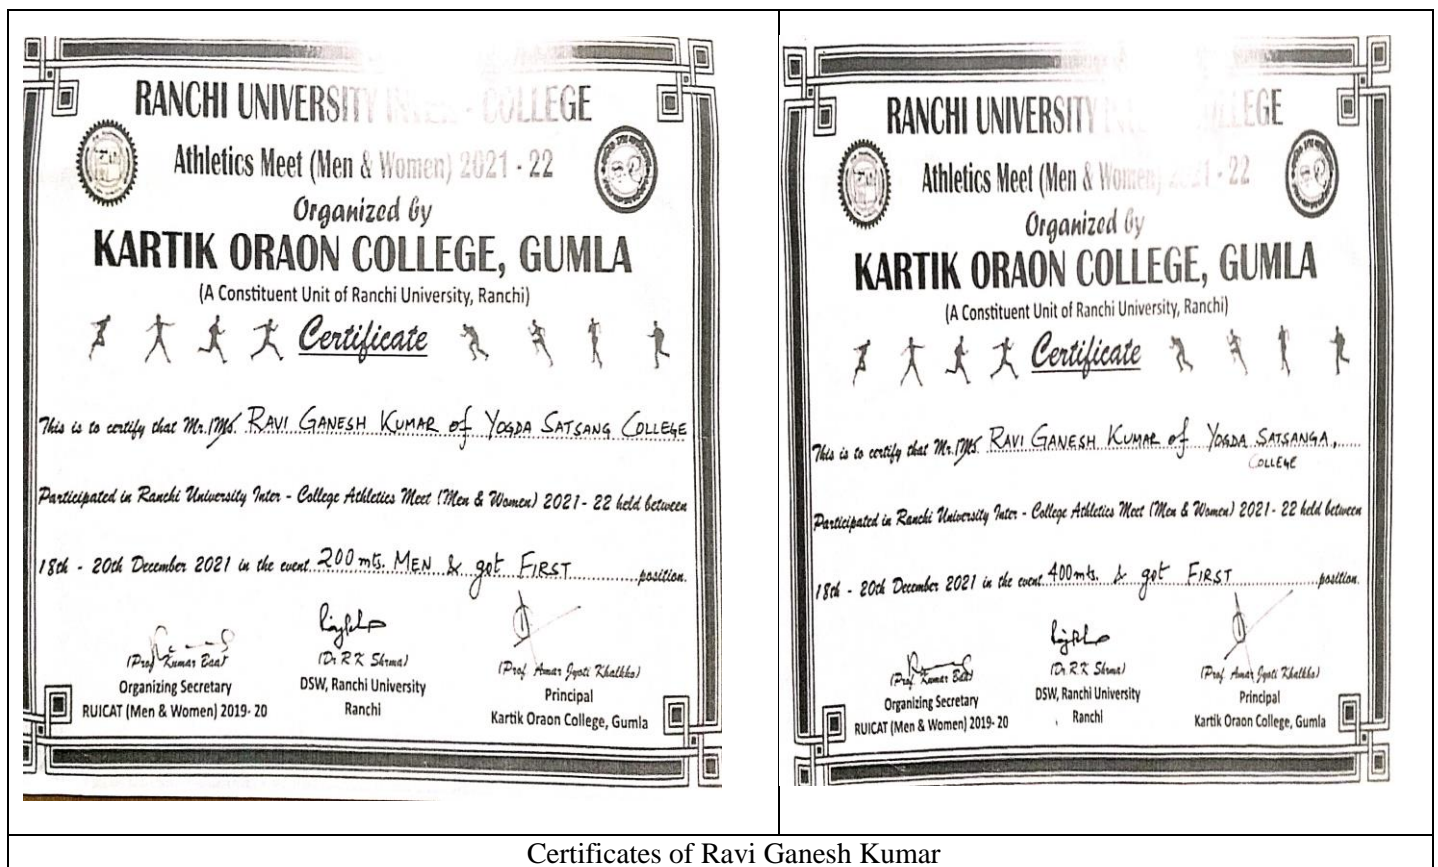 RANCHI UNIVERSITY INTER - COLLEGE
Athletics Meet (Men & Women) 2021 - 22
Organized by
KARTIK ORAON COLLEGE, GUMLA
(A Constituent Unit of Ranchi University, Ranchi)
Certificate
This is to certify that Mr./Ms. RAVI GANESH KUMAR of YOGDA SATSANG COLLEGE
Participated in Ranchi University Inter - College Athletics Meet (Men & Women) 2021 - 22 held between
18th - 20th December 2021 in the event 200 mts. MEN & got FIRST position.
(Prof Kumar Baa)
Organizing Secretary
RUICAT (Men & Women) 2019- 20
(Dr R K Shrma)
DSW, Ranchi University
Ranchi
(Prof Amar Jyoti Khalkho)
Principal
Kartik Oraon College, Gumla
RANCHI UNIVERSITY COLLEGE
Athletics Meet (Men & Women) 2021 - 22
Organized by
KARTIK ORAON COLLEGE, GUMLA
(A Constituent Unit of Ranchi University, Ranchi)
Certificate
This is to certify that Mr./Ms. RAVI GANESH KUMAR of YOGDA SATSANGA,
COLLEGE
Participated in Ranchi University Inter - College Athletics Meet (Men & Women) 2021 - 22 held between
18th - 20th December 2021 in the event 400mts. & got FIRST position.
(Prof Kumar Baa)
Organizing Secretary
RUICAT (Men & Women) 2019- 20
(Dr R K Shrma)
DSW, Ranchi University
Ranchi
(Prof Amar Jyoti Khalkho)
Principal
Kartik Oraon College, Gumla
Certificates of Ravi Ganesh Kumar